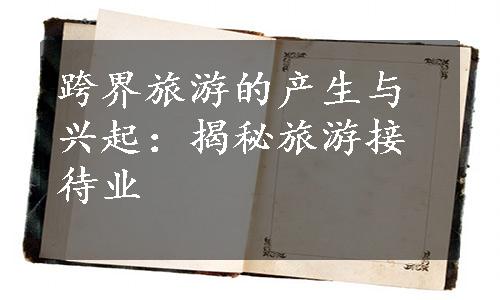 跨界旅游的产生与
兴起：揭秘旅游接
待业